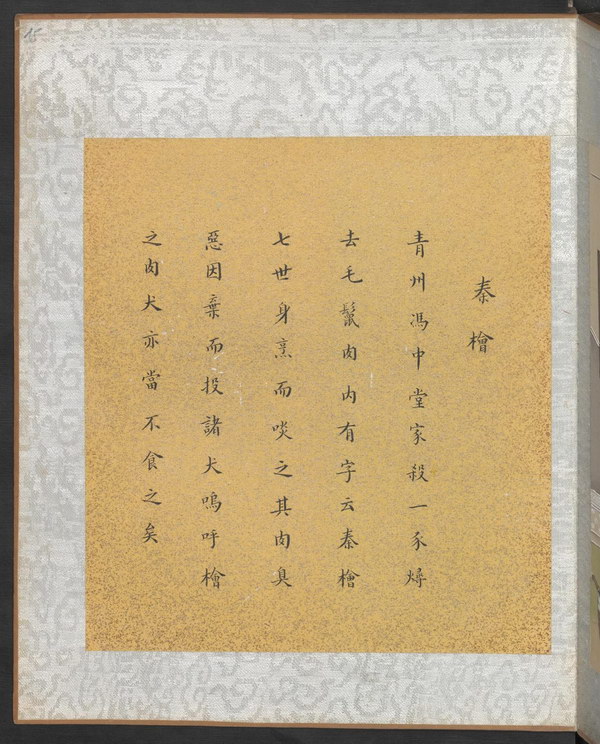 15
秦檜
青州馮中堂家殺一豕燖
去毛鬛肉内有字云秦檜
七世身烹而啖之其肉臭
惡因棄而投諸犬嗚呼檜
之肉犬亦當不食之矣